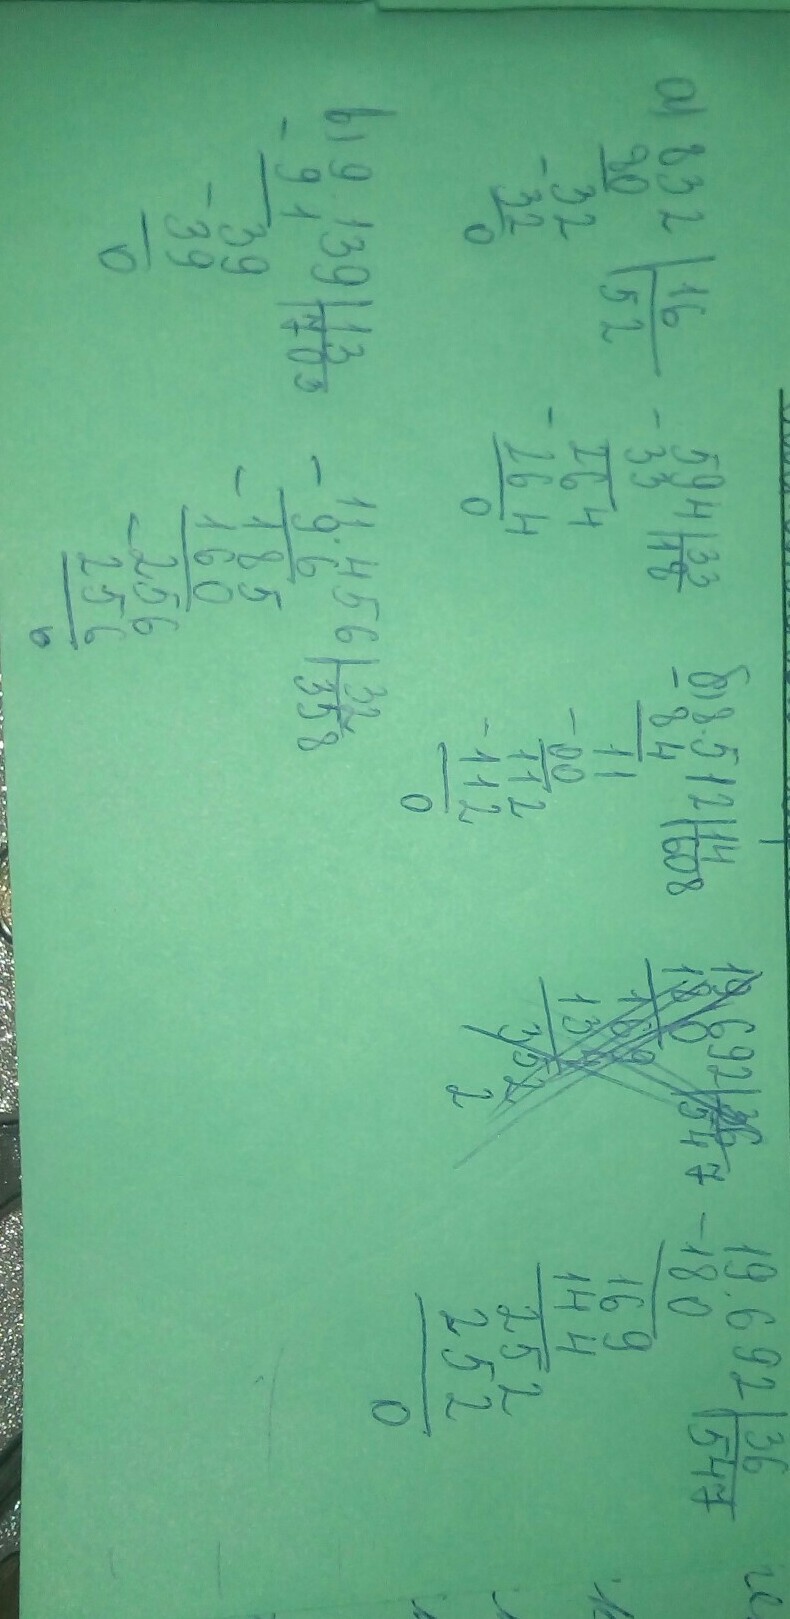 а) 832 | 16
80 52
- 32
32
0
- 594 | 33
33 18
- 264
264
0
б) 8.512 | 14
- 84 608
11
- 00
112
- 112
0
19692 | 36
180 547
169
2
- 19.692 | 36
180 547
169
144
252
252
0
в) 9.139 | 13
- 91 703
39
- 39
0
- 11.456 | 32
9.6 358
- 185
160
- 256
256
0